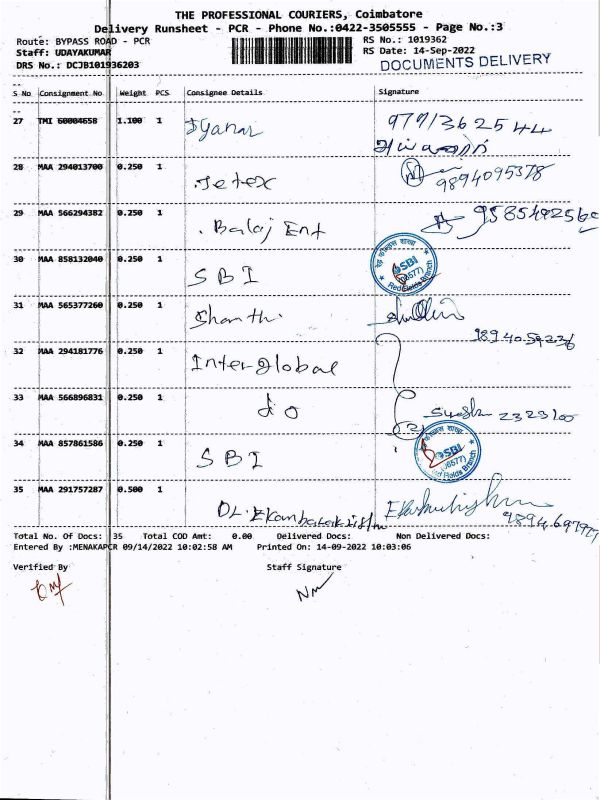 THE PROFESSIONAL COURIERS, Coimbatore
Delivery Runsheet - PCR - Phone No.:0422-3505555 - Page No.:3
Route: BYPASS ROAD - PCR
RS No.: 1019362
Staff: UDAYAKUMAR
RS Date: 14-Sep-2022
DRS No.: DCJB101936203
DOCUMENTS DELIVERY
S No Consignment No Weight PCS Consignee Details Signature
27 TMI 60004658 1.100 1 Iyanar
28 MAA 294013700 0.250 1 Jetex 9894095378
29 MAA 566294382 0.250 1 Balaj Ent
30 MAA 858132040 0.250 1 SBI
SBI
Red Fields Branch
31 MAA 565377260 0.250 1 Shanthi
32 MAA 294181776 0.250 1 Inter global
33 MAA 566896831 0.250 1 do 2323100
34 MAA 857861586 0.250 1 SBI
SBI
Red Fields Branch
35 MAA 291757287 0.500 1
Total No. Of Docs: 35 Total COD Amt: 0.00 Delivered Docs: Non Delivered Docs:
Entered By :MENAKAPCR 09/14/2022 10:02:58 AM Printed On: 14-09-2022 10:03:06
Verified By Staff Signature